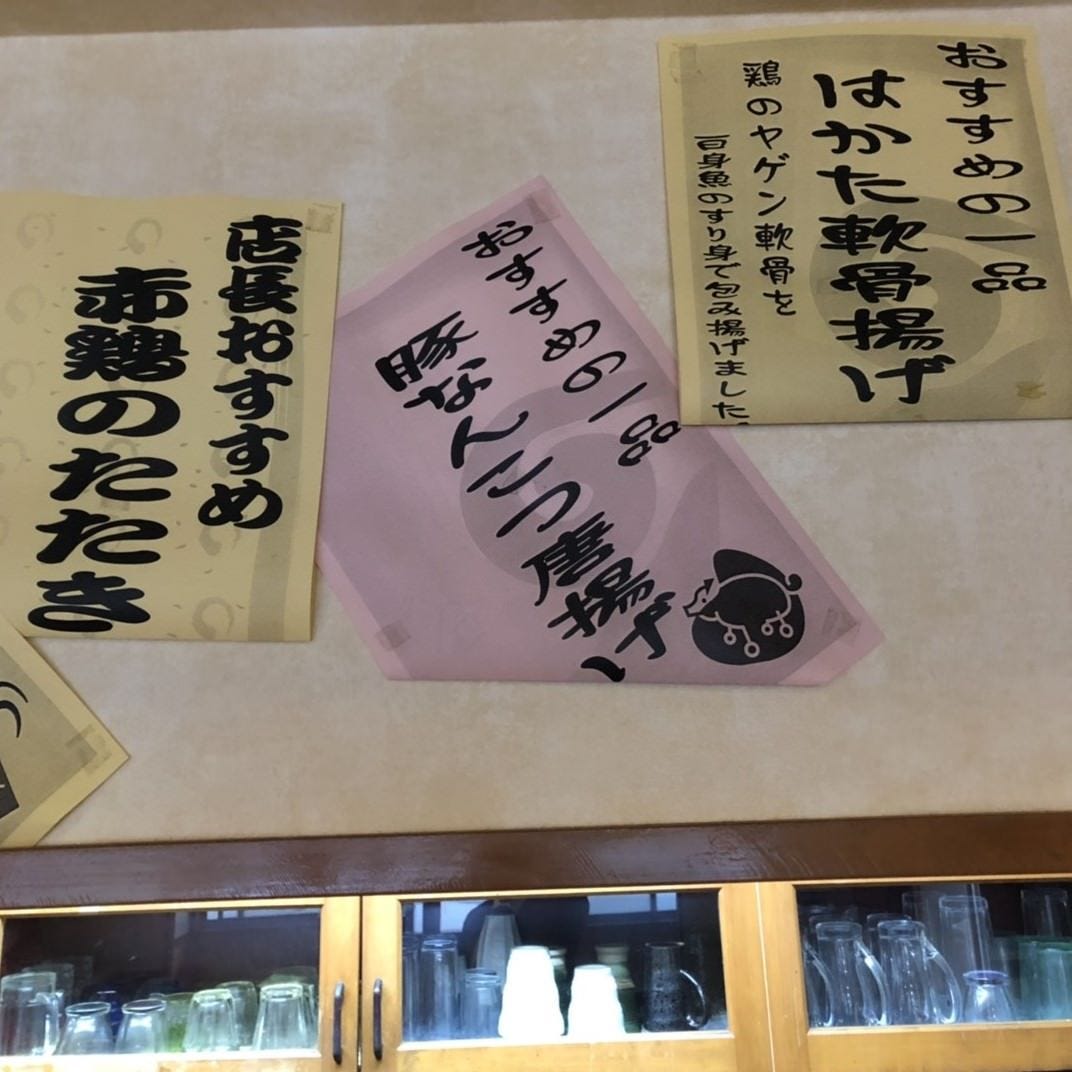 おすすめの一品
はかた軟骨揚げ
鶏のヤゲン軟骨を
白身魚のすり身で包み揚げました。
おすすめの一品
豚なんこつ唐揚げ
店長おすすめ
赤鶏のたたき